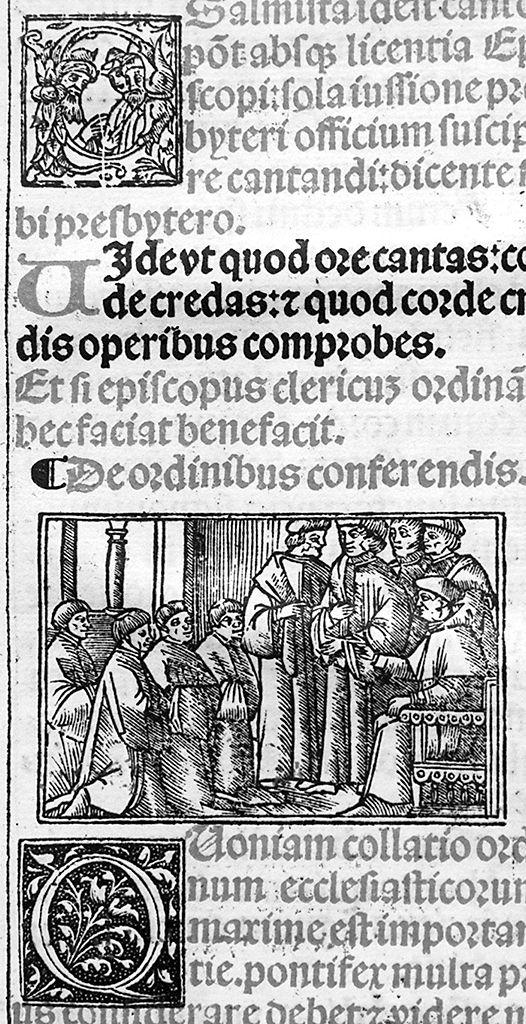 Salmista idest canto
põt absqꝫ licentia Ep
scopi: sola iussione pre
byteri officium suscip
re cantandi: dicente
bi presbytero.
UIde vt quod ore cantas: co
de credas: ⁊ quod corde cr
dis operibus comprobes.
Et si episcopus clericuꝫ ordinā
hec faciat benefacit.
¶ De ordinibus conferendis.
QUoniam collatio ord
num ecclesiasticorum
maxime est importan
tie. pontifex multa p
us considerare debet ⁊ videre n